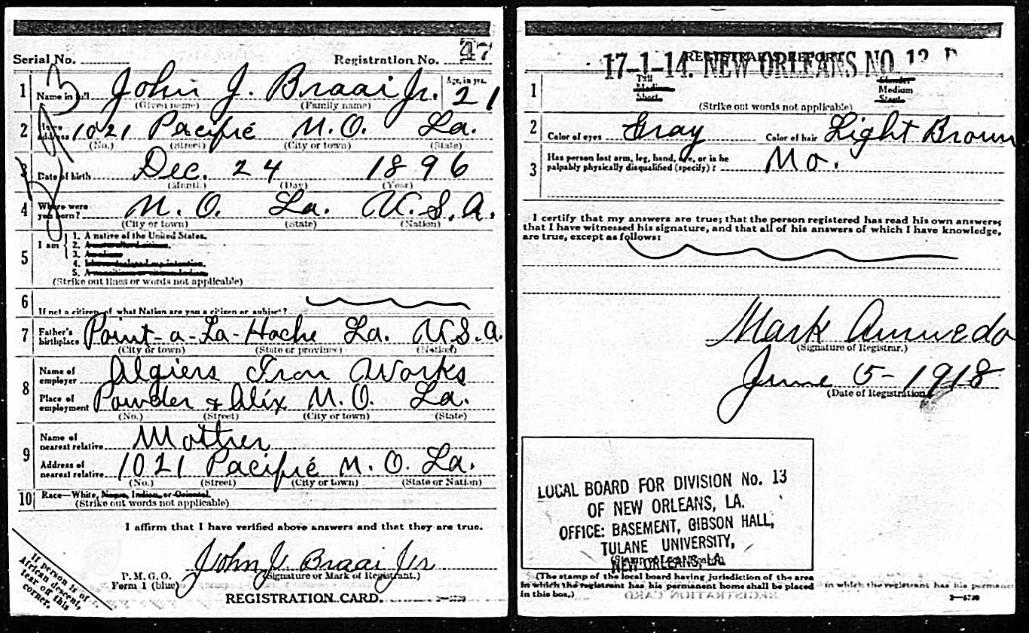 Serial No. Registration No. 47
1 Name in full John J. Braai Jr. Age, in yrs. 21
(Given name) (Family name)
2 Home address 1021 Pacific N.O. La.
(No.) (Street) (City or town) (State)
3 Date of birth Dec. 24 1896
(Month.) (Day) (Year)
4 Where were you born? N. O. La. U.S.A.
(City or town) (State) (Nation)
5 I am 1. A native of the United States.
2.
3. An alien
4. I have declared my intention.
5.
(Strike out lines or words not applicable)
6 If not a citizen, of what Nation are you a citizen or subject?
7 Father's birthplace Point-a-La-Hache La. U.S.A.
(City or town) (State or province) (Nation)
8 Name of employer Algiers Iron Works
Place of employment Powder & Alix N.O. La.
(No.) (Street) (City or town) (State)
9 Name of nearest relative Mother
Address of nearest relative 1021 Pacific N.O. La.
(No.) (Street) (City or town) (State or Nation)
10 Race—White, Negro, Indian, or Oriental.
(Strike out words not applicable)
I affirm that I have verified above answers and that they are true.
John J Braai Jr
P.M.G.O. Form 1 (blue) (Signature or Mark of Registrant.)
REGISTRATION CARD.
If person is of African descent, tear off this corner.
REGISTRAR'S REPORT
17-1-14. NEW ORLEANS NO.
1 Tall Medium Short Slender Medium Stout
(Strike out words not applicable)
2 Color of eyes Gray Color of hair Light Brown
3 Has person lost arm, leg, hand, eye, or is he palpably physically disqualified (specify)? No.
I certify that my answers are true; that the person registered has read his own answers;
that I have witnessed his signature, and that all of his answers of which I have knowledge,
are true, except as follows:
Mark
(Signature of Registrar.)
June 5-1918
(Date of Registration)
LOCAL BOARD FOR DIVISION No. 13
OF NEW ORLEANS, LA.
OFFICE: BASEMENT, GIBSON HALL,
TULANE UNIVERSITY,
NEW ORLEANS, LA.
(The stamp of the local board having jurisdiction of the area
in which the registrant has his permanent home shall be placed
in this box.)